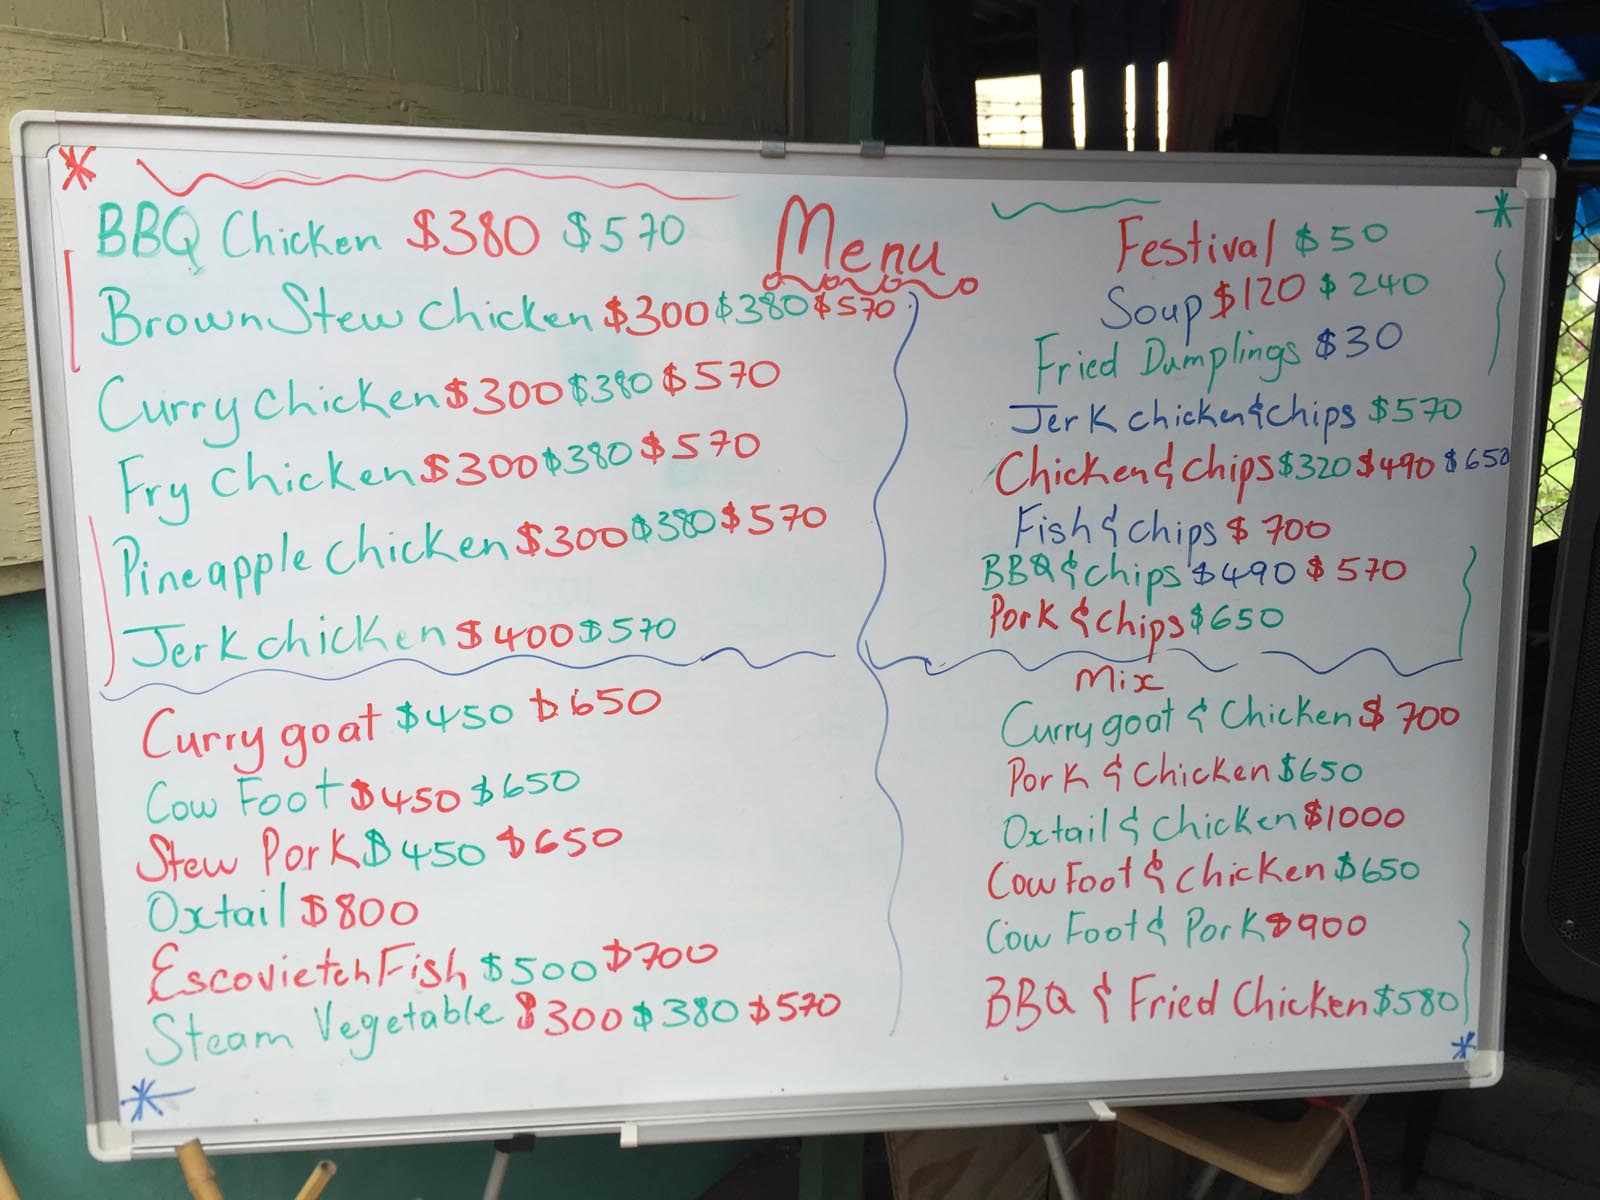 Menu
BBQ Chicken $380 $570
Brown Stew Chicken $300 $380 $570
Curry chicken $300 $380 $570
Fry chicken $300 $380 $570
Pineapple chicken $300 $380 $570
Jerk chicken $400 $570
Curry goat $450 $650
Cow Foot $450 $650
Stew Pork $450 $650
Oxtail $800
Escovietch Fish $500 $700
Steam Vegetable $300 $380 $570
Festival $50
Soup $120 $240
Fried Dumplings $30
Jerk chicken & chips $570
Chicken & chips $320 $490 $650
Fish & chips $700
BBQ & chips $490 $570
Pork & chips $650
Mix
Curry goat & Chicken $700
Pork & Chicken $650
Oxtail & chicken $1000
Cow Foot & chicken $650
Cow Foot & Pork $900
BBQ & Fried Chicken $580